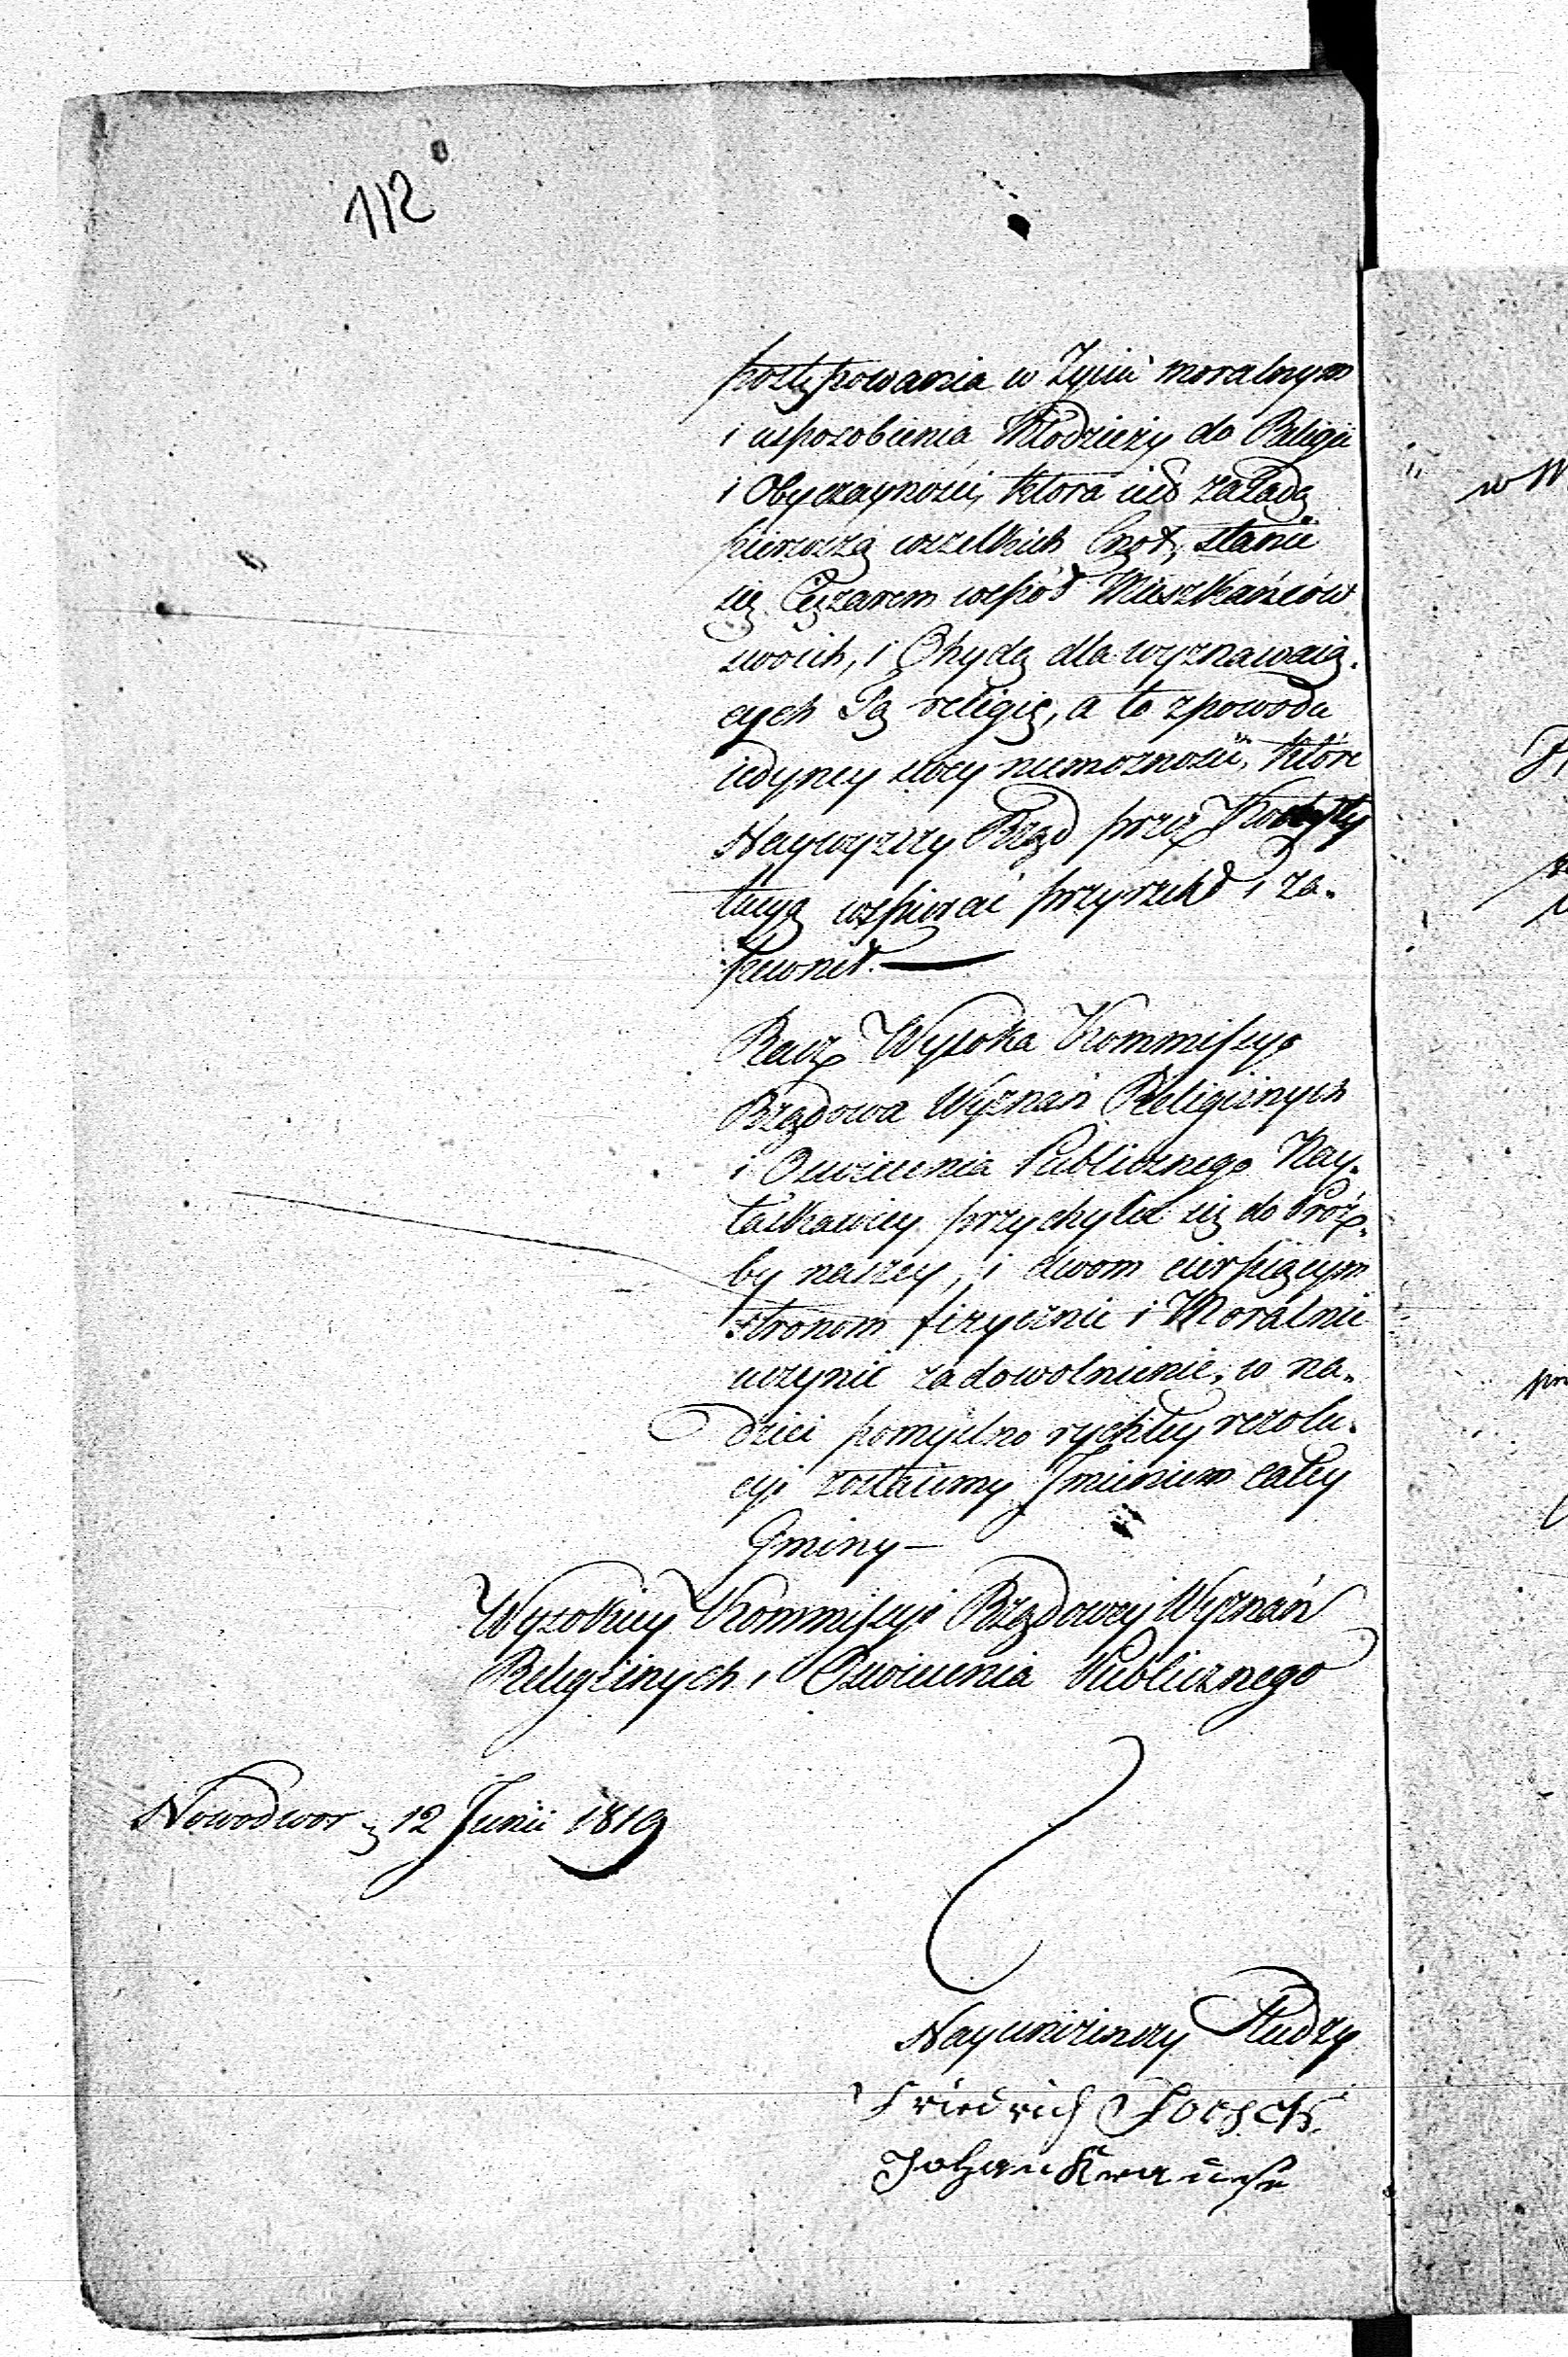 112
postępowania w Życiu moralnym
i usposobienia Młodzieży do Religii
i Obyczayności, która iest zasadą
pierwszą wszelkich Cnot, stanie
się Ciężarem wspód Mieszkańców
swoich, i Ohydą dla wyznawaią-
cych Tą religię, a to z powodu
iedyney swey niemożności, które
Naywyższy Rząd przez Konsty
tucyą wspierać przyrzekł i za-
pewnił.—
Racz Wysoka Kommissyo
Rządowa Wyznań Religiinych
i Oswiecenia Publicznego Nay-
łaskawiey przychylić się do Proź-
by naszey, i dwom cierpiącym
stronom fizycznie i Moralnie
uczynić zadowolnienie, w na-
dziei pomyslno rychłey rezolu-
cyi zostaiemy Imieniem całey
Gminy—
Wysokiey Kommissyi Rządowey Wyznań
Religiinych i Oswiecenia Publicznego
Nowodwor 12 Junii 1819
Nayunizensy Słudzy
Friedrich
Johan Krause
w